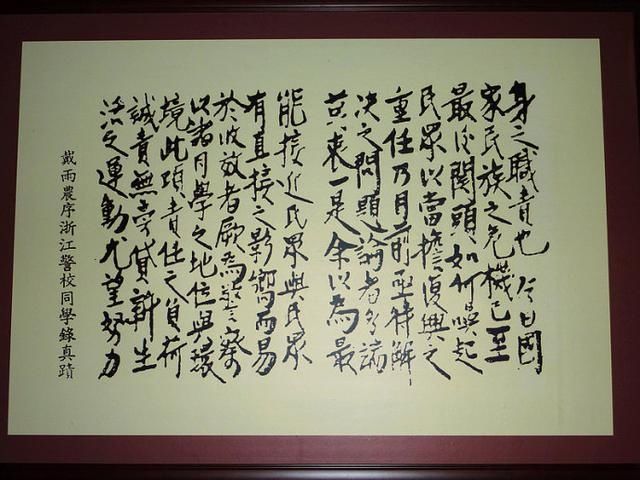 身之職責也 今日國
家民族之危機已至
最後關頭如何喚起
民眾以當擔復興之
重任乃目前亟待解
決之問題論者多端
莫衷一是余以為最
能接近民眾與民眾
有直接之影響而易
於收效者厥為警察
以諸同學之地位與環
境此項責任之負荷
誠責無旁貸新生
活之運動尤望努力
戴雨農序浙江警校同學錄真蹟